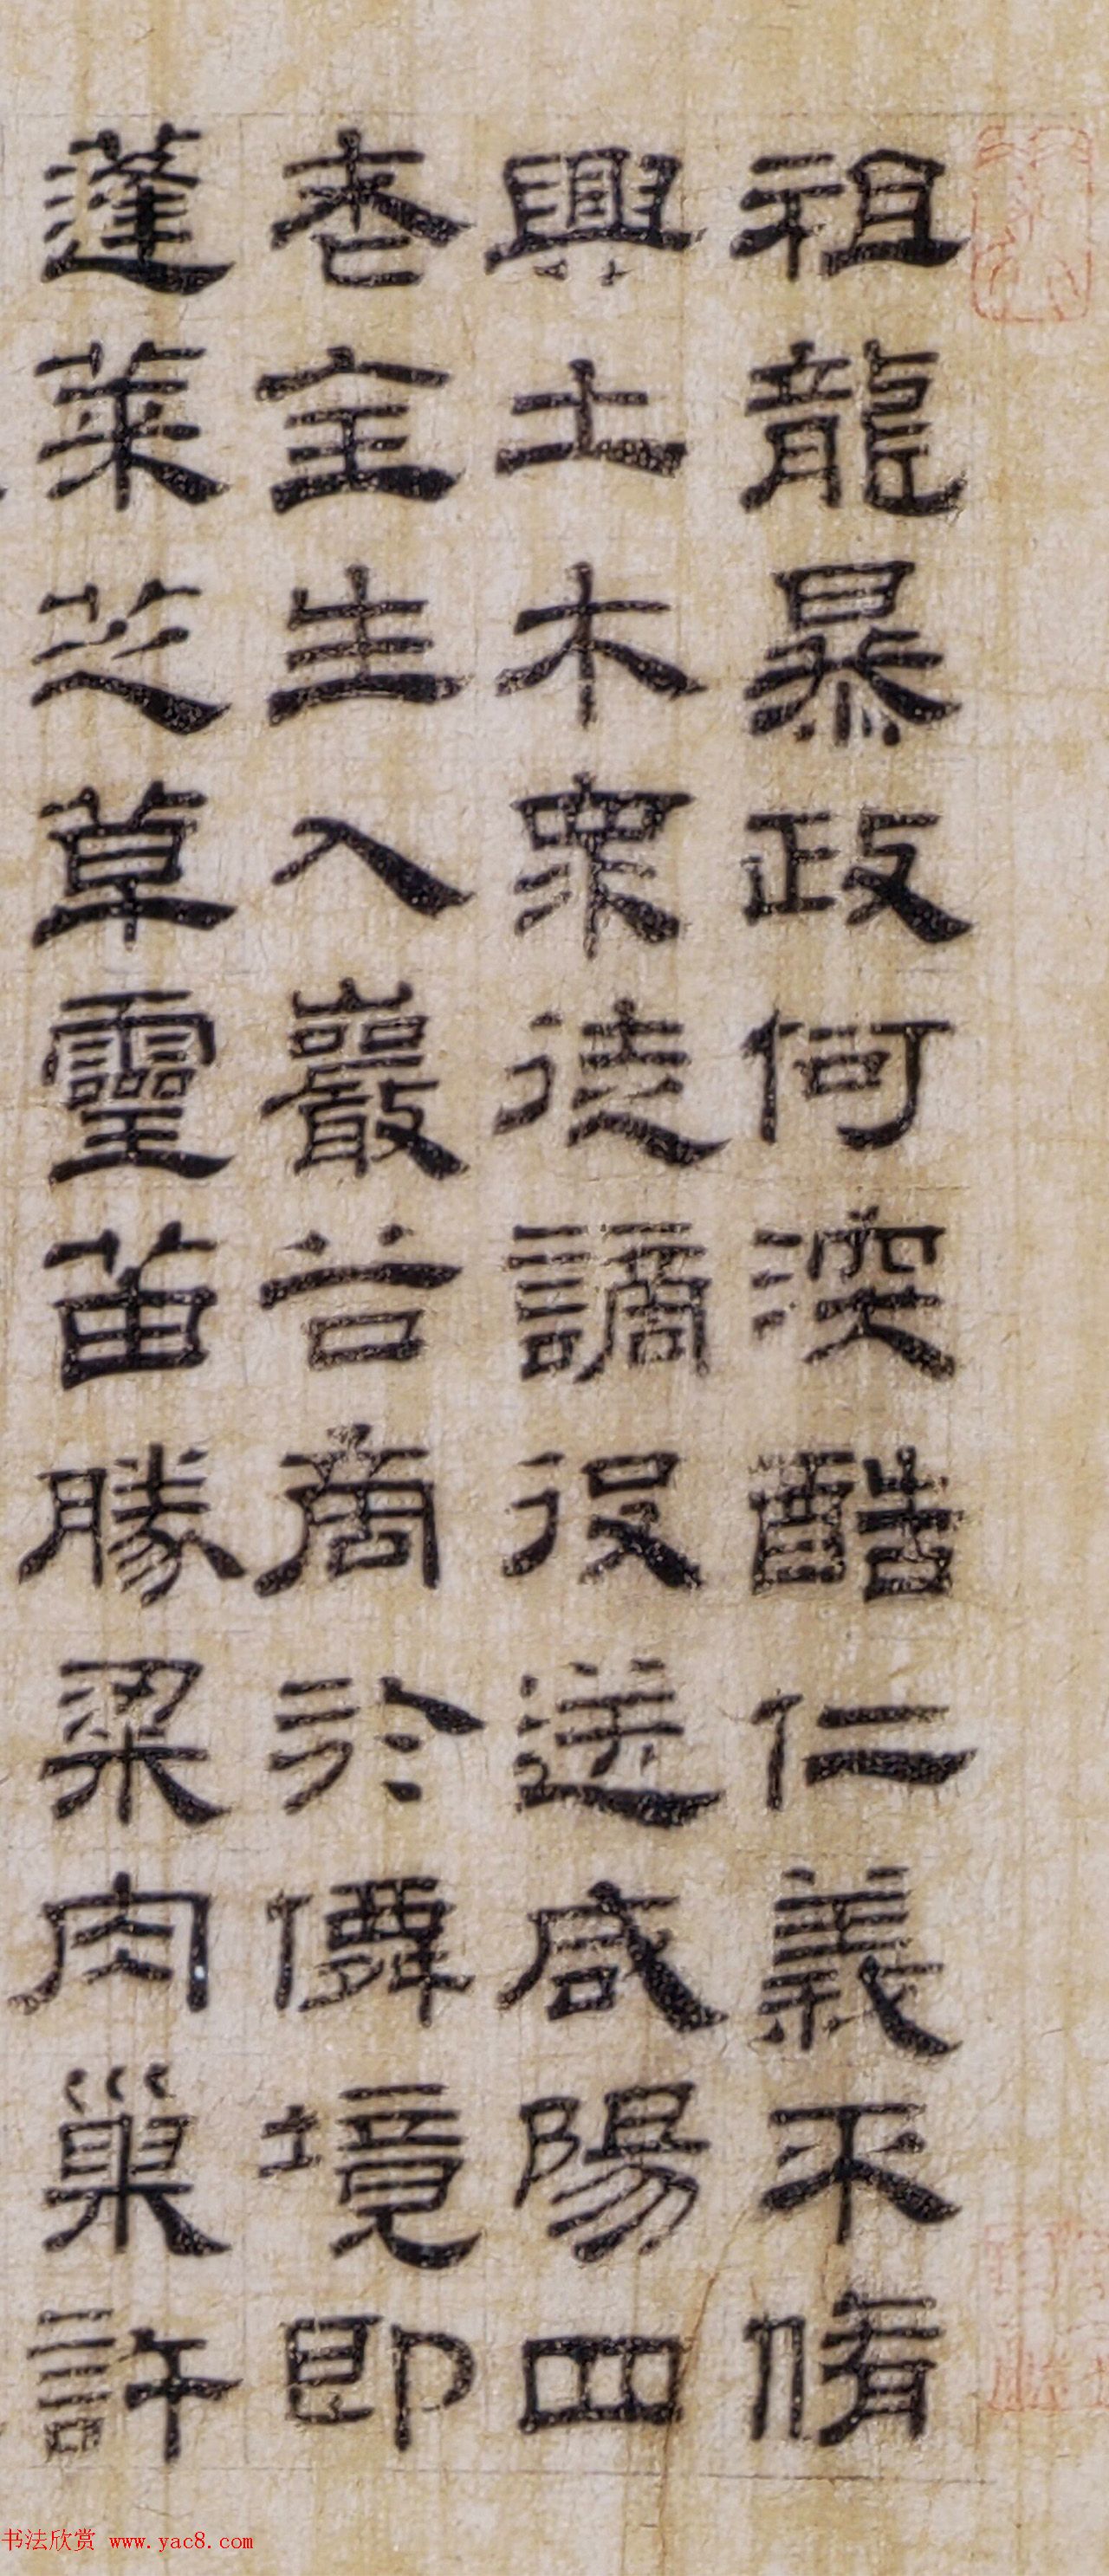 祖龍暴政何深酷仁義不脩
興土木衆徒謫役送咸陽四
老全生入巖谷商於僊境即
蓬萊芝草靈苗勝粱肉巢許
书法欣赏 www.yac8.com